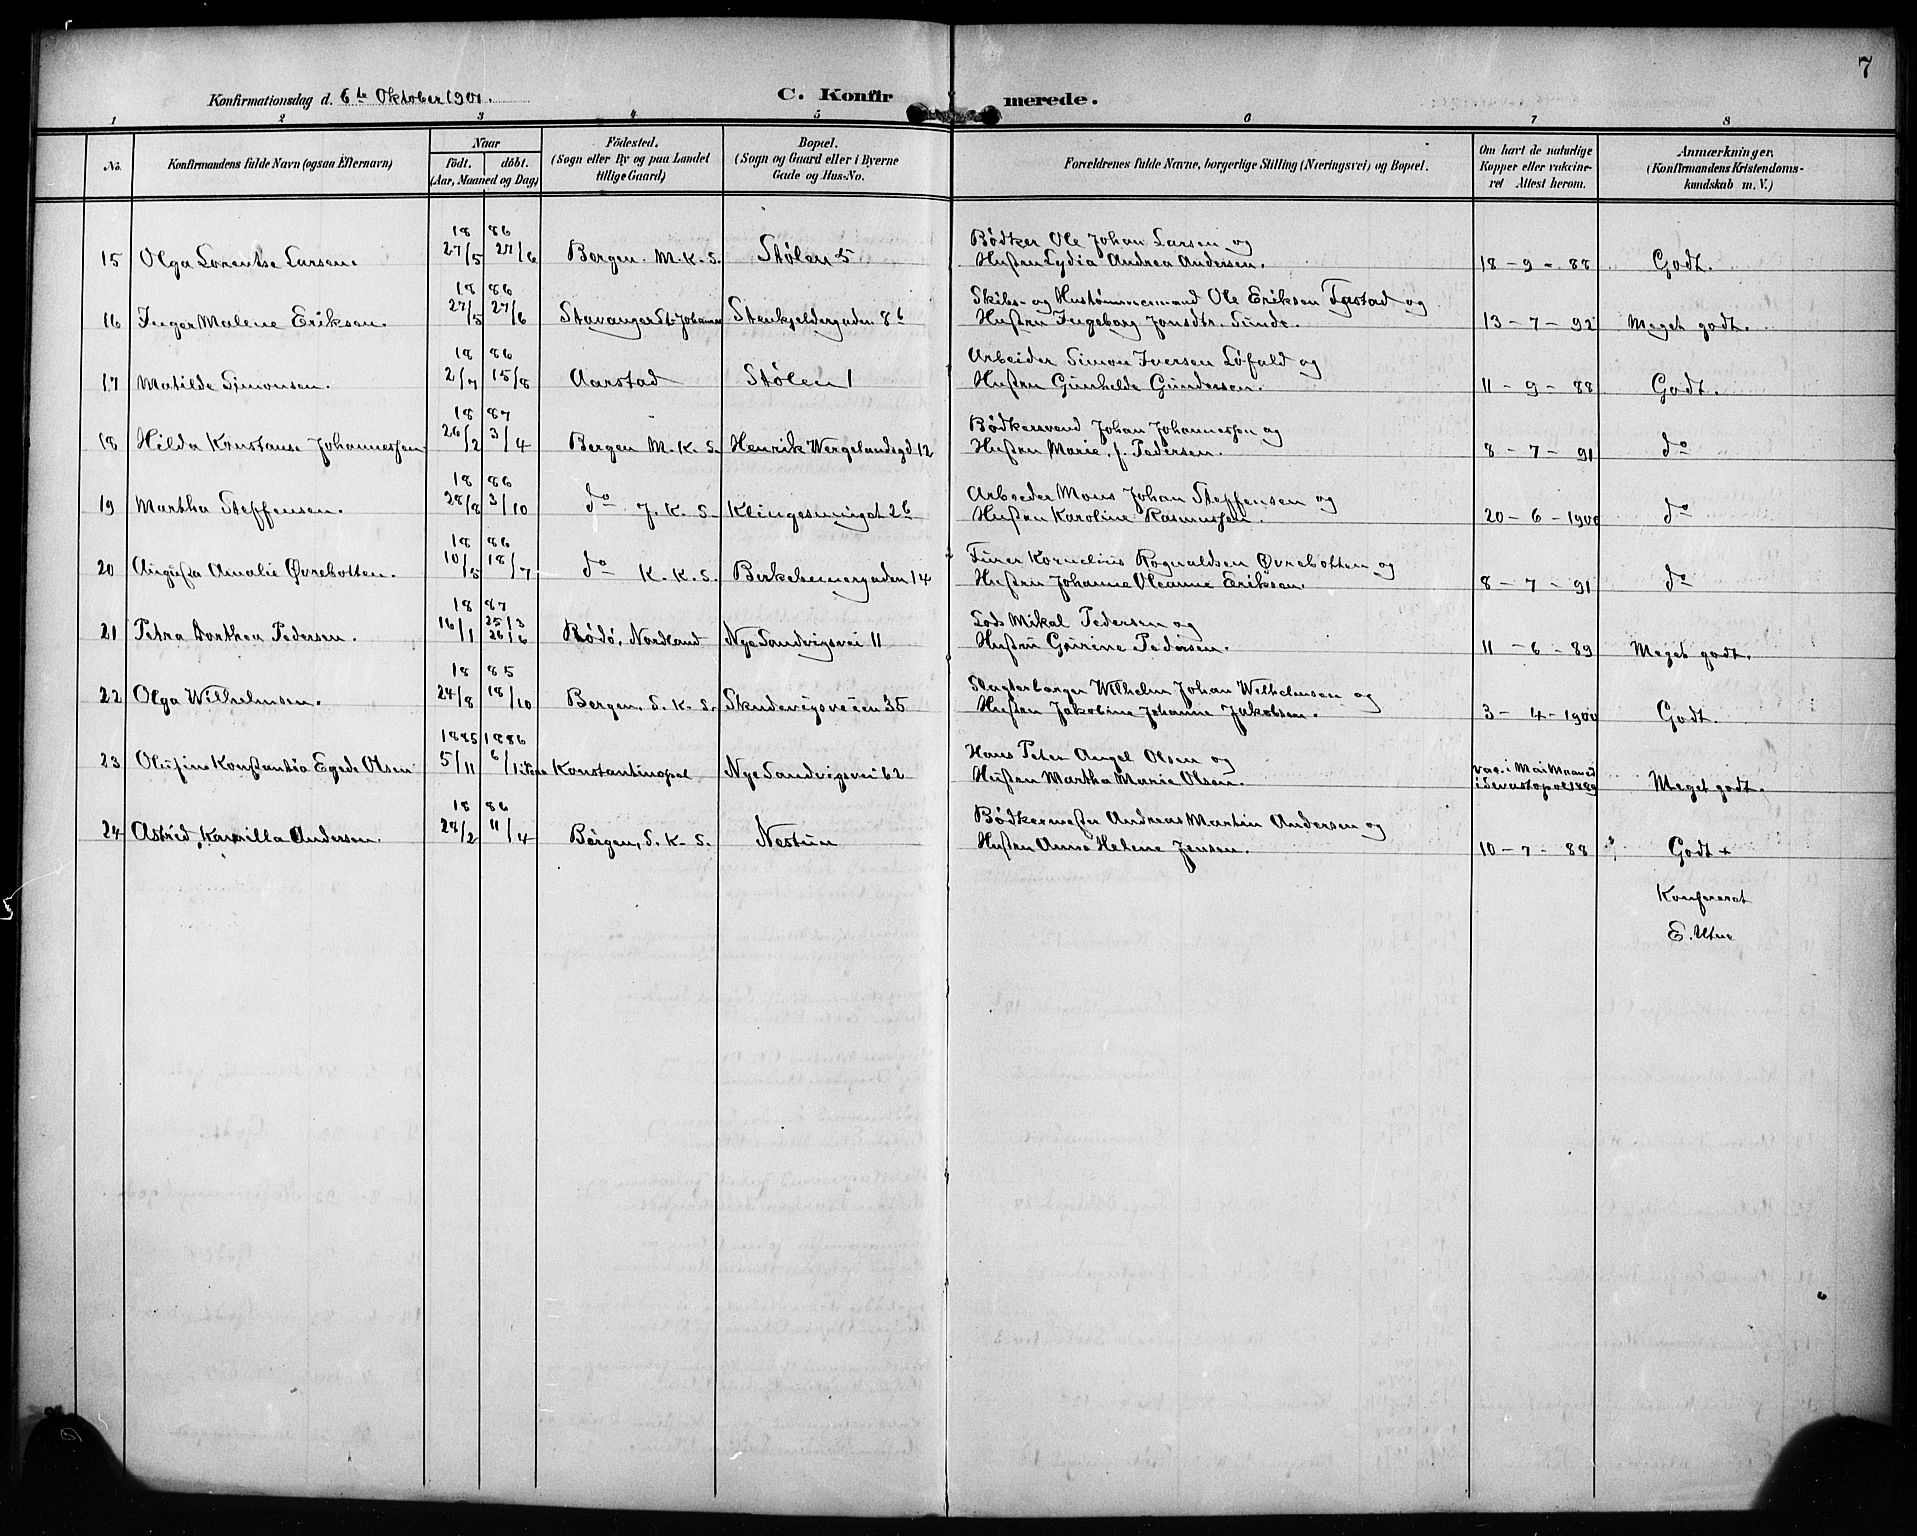 7
Konfirmationsdag d. 6te Oktober 1901.
C. Konfirmerede.
1 2 3 4 5 6 7 8
No.
Konfirmandens fulde Navn (ogsaa Efternavn)
Naar
födt. döbt.
(Aar, Maaned og Dag)
Födested.
(Sogn eller By og paa Landet
tillige Gaard)
Bopæl.
(Sogn og Gaard eller i Byerne
Gade og Hus-No.
Forældrenes fulde Navne, borgerlige Stilling (Næringsvei) og Bopæl.
Om havt de naturlige
Kopper eller vakcine-
ret Attest herom.
Anmærkninger,
(Konfirmandens Kristendoms-
kundskab m. V.)
18 86
15 Olga Lorentse Larsen. 27/5 27/6 Bergen. M. K. S. Stølen 5 Bödker Ole Johan Larsen og
Hustru Lydia Andrea Andersen. 18 - 9 - 88 Godt.
18 86
16 Inger Malene Eriksen. 27/5 27/6 Stavanger St. Johannes Stenkjeldergaden 8b Skibs- og Hustømmermand Ole Eriksen Tastad og
Hustru Ingeborg Jonsdtr. Sunde. 13 - 7 - 92 Meget godt.
18 86
17 Matilde Simonsen. 2/7 15/8 Aarstad Stølen 1 Arbeider Simon Iversen Løfald og
Hustru Gunhilde Gundersen. 11 - 9 - 88 Godt.
18 87
18 Hilda Konstanse Johannessen 26/2 3/4 Bergen M. K. S. Henrik Wergelandsgd 12 Bödkersvend Johan Johannessen og
Hustru Marie, f. Pedersen. 8 - 7 - 91 do
18 86
19 Martha Steffensen. 28/8 3/10 do J. K. S. Klingesmuget 26 Arbeder Mons Johan Steffensen og
Hustru Karoline Rasmussen. 20 - 6 - 1900 do
18 86
20 Augusta Amalie Øvrebotten. 10/5 18/7 do K. K. S. Birkebeinergaden 14 Kornelius Rognaldsen Øvrebotten og
Hustru Johanne Oleanne Eriksen. 8 - 7 - 91 do
18 87
21 Petra Dorthea Pedersen. 16/1 25/3 26/6 Bödö, Nordland Nye Sandvigsvei 11 Lods Mikal Pedersen og
Hustru Gurine Pedersen. 11 - 6 - 89 Meget godt.
18 85
22 Olga Wilhelmsen. 24/8 18/10 Bergen, S. K. S. Skudevigsveien 35 Slagterborger Wilhelm Johan Wilhelmsen og
Hustru Jakobine Johanne Jakobsen. 3 - 4 - 1900 Godt.
1885 1886
23 Olufine Konstantia Egede Olsen 5/11 6/1 Konstantinopel Nye Sandvigsvei 62 Hans Peter Angel Olsen og
Hustru Martha Marie Olsen. vac. i Mai Maaned
i Sevastopol 1889 Meget godt.
18 86
24 Astrid Kamilla Andersen. 28/2 11/4 Bergen, S. K. S. Nestun Bödkermester Andreas Martin Andersen og
Hustru Anna Helene Jensen. 10 - 7 - 88 Godt +
Konfereret
E. Utne